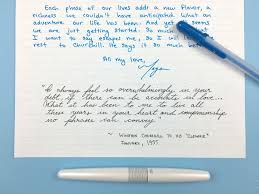 Each phase of our lives adds a new flavor, a
richness we couldn't have anticipated. What an
adventure our life has been. And yet it seems
we are just getting started. So much
I want to say escapes me, so I will let
rest to Churchill. He says it so much
All my love,
"I always feel so overwhelmingly in your
debt, if there can be accounts in love...
What it has been to me to live all
these years in your heart and companionship
no phrases can convey."
~ Winston Churchill to his "Clemmie"
January, 1935